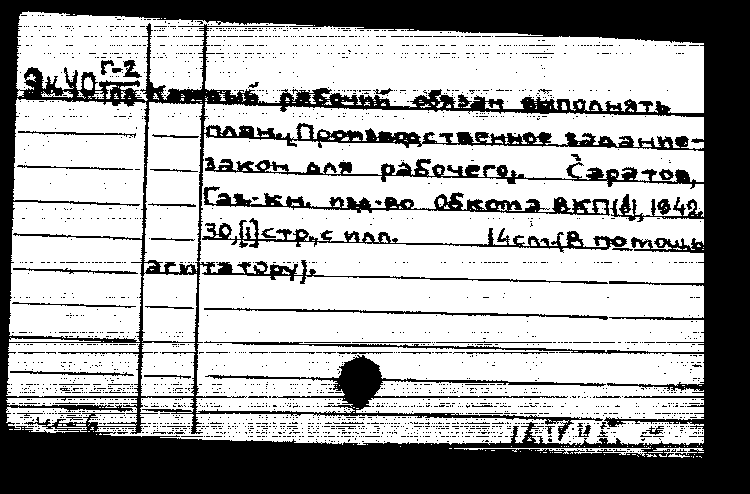 ЭкУО Г-2/Т00 Каждый рабочий обязан выполнять
план. [Производственное задание-
закон для рабочего]. Саратов,
Газ.-кн. изд-во Обкома ВКП(б), 1942.
30,[1]стр., с илл. 14см.(В помощь
агитатору).